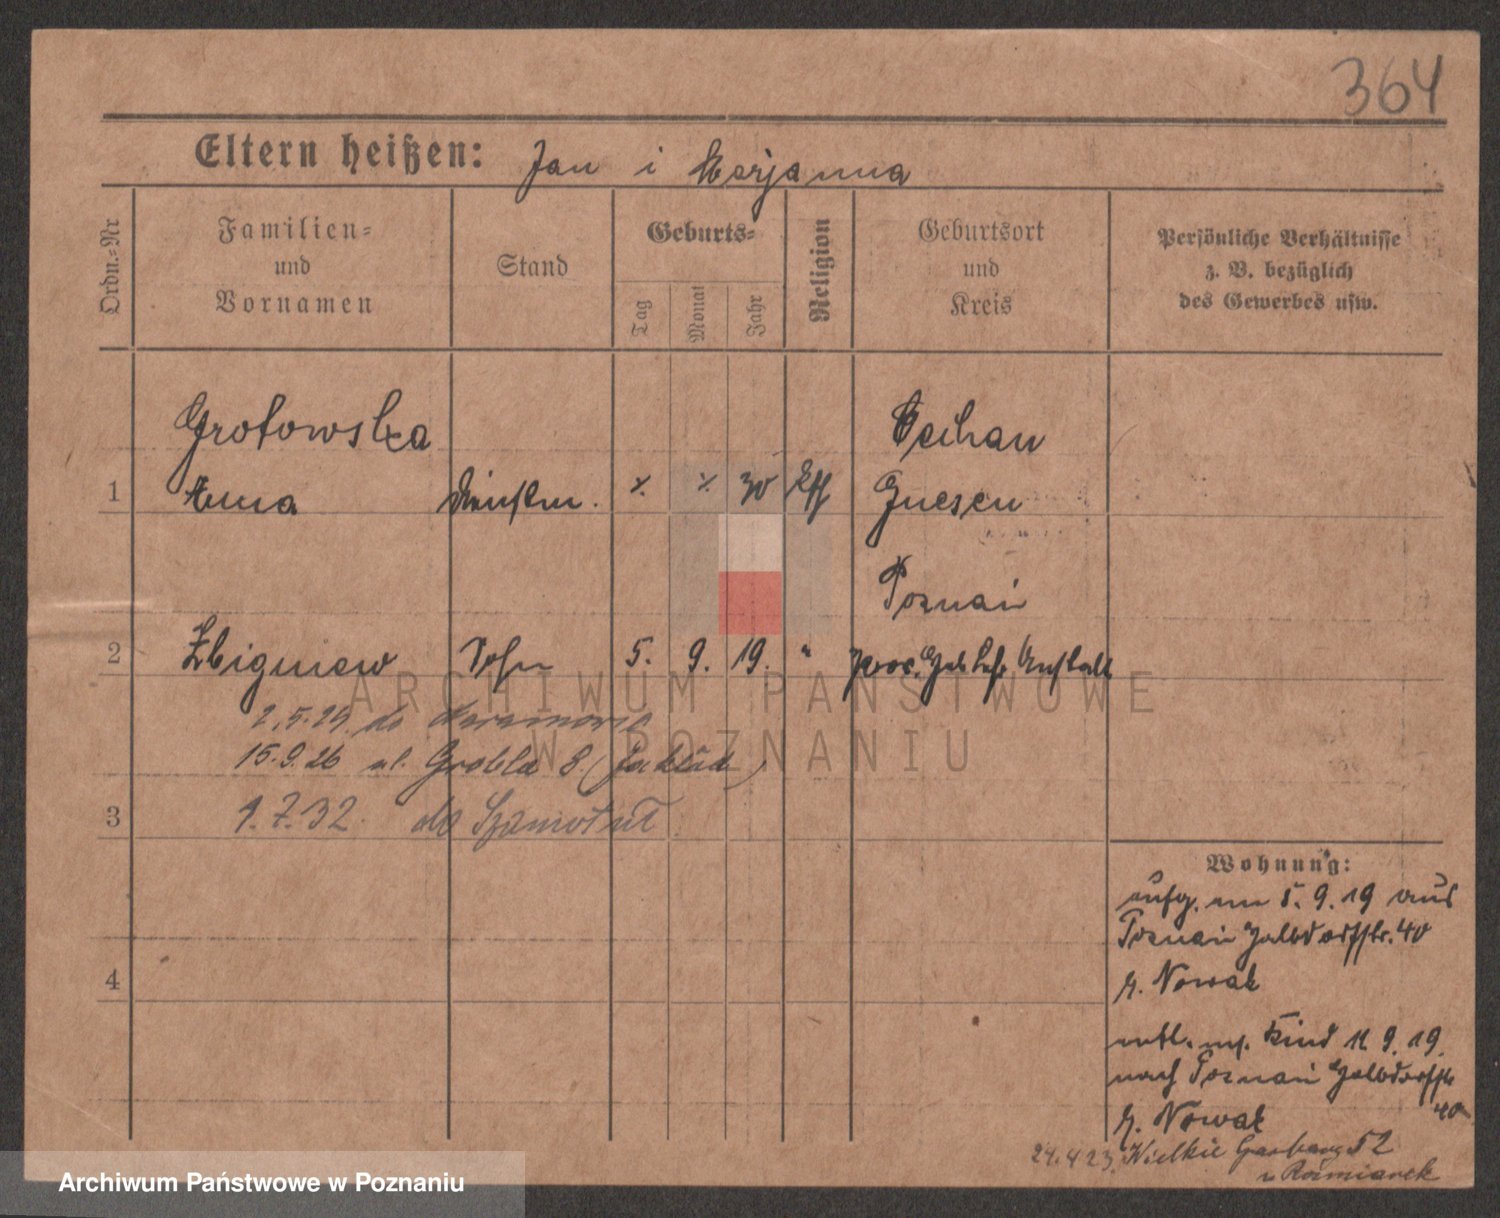 364
Eltern heißen: Jan i Marjanna
Ordn.-Nr
Familien-
und
Vornamen
Stand
Geburts-
Tag
Monat
Jahr
Religion
Geburtsort
und
Kreis
Persönliche Verhältnisse
z. B. bezüglich
des Gewerbes usw.
Grotowska
1 Anna 30 Gnesen
Poznań
2 Zbigniew Sohn 5. 9. 19. " Prov. Heb. Lehr Anstalt
ARCHIWUM PAŃSTWOWE
W POZNANIU
15.9.26 ul. Grobla 8 (Zakład)
3 1.7.32. do Szamotuł
4
Wohnung:
aufg. am 5. 9. 19 aus
Poznań 40
b. Nowak
entl. m. Kind 11 9. 19.
nach Poznań
40
b. Nowak
24.4.23. Wielkie Garbary 52
u Rozmiarek
Archiwum Państwowe w Poznaniu